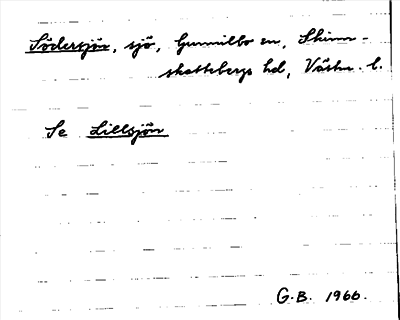 Södersjön, sjö, Gunnilbo sn, Skinn-
skattebergs hd, Västm. l.
Se Lillsjön
G.B. 1966.